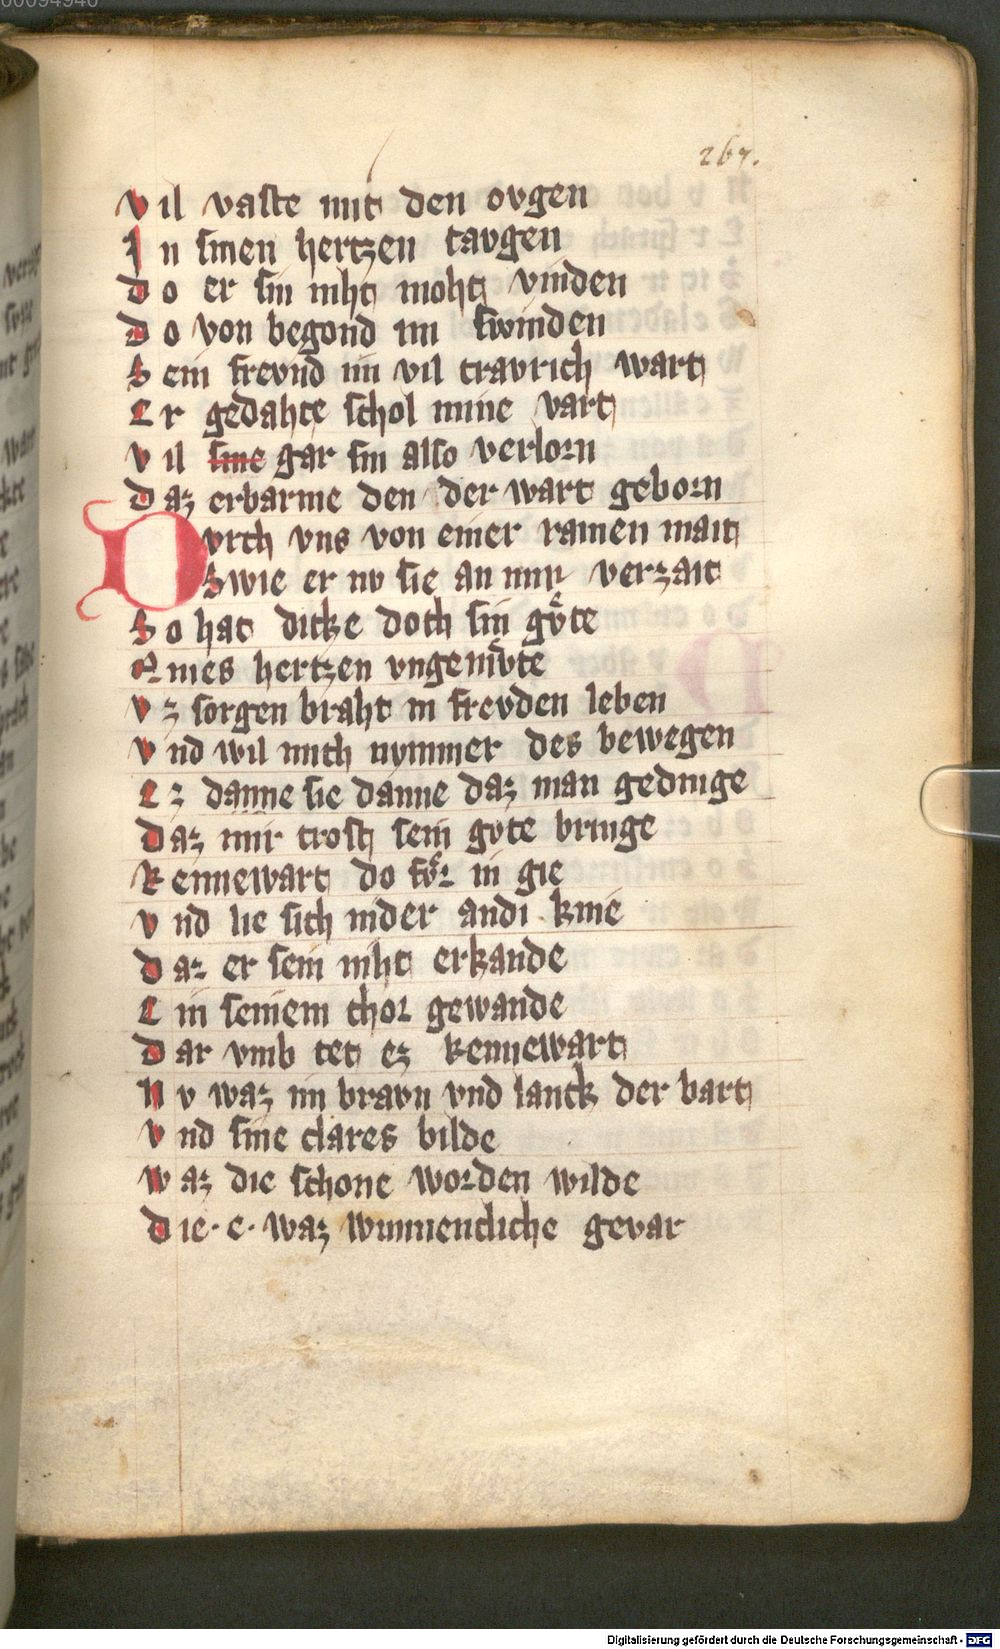 00094946
267.
Vil vaste mit den ovgen
In sinen hertzen tavgen
Do er sin niht moht vinden
Do von begond im swinden
Sein frevnd im vil travrich wart
Er gedahte schol mine vart
Vil sine gar sin also verlorn
Daz erbarme den der wart geborn
Dvrch vns von einer rainen mait
Swie er nv sie an mir verzait
So hat dicke doch sin gvͦte
Mines hertzen vngemvͦte
Vz sorgen braht in frevden leben
Vnd wil mich nymmer des bewegen
Ez danne sie danne daz man gedinge
Daz mir trost sein gvte bringe
Rennewart do fvͦr in gie
Vnd lie sich nider an di knie
Daz er sein niht erkande
Ein seinem chor gewande
Dar vmb tet ez Rennewart
Nv waz im bravn vnd lanck der bart
Vnd sine clares bilde
Waz die schone worden wilde
Die · e · waz wunnencliche gevar
Digitalisierung gefördert durch die Deutsche Forschungsgemeinschaft - DFG